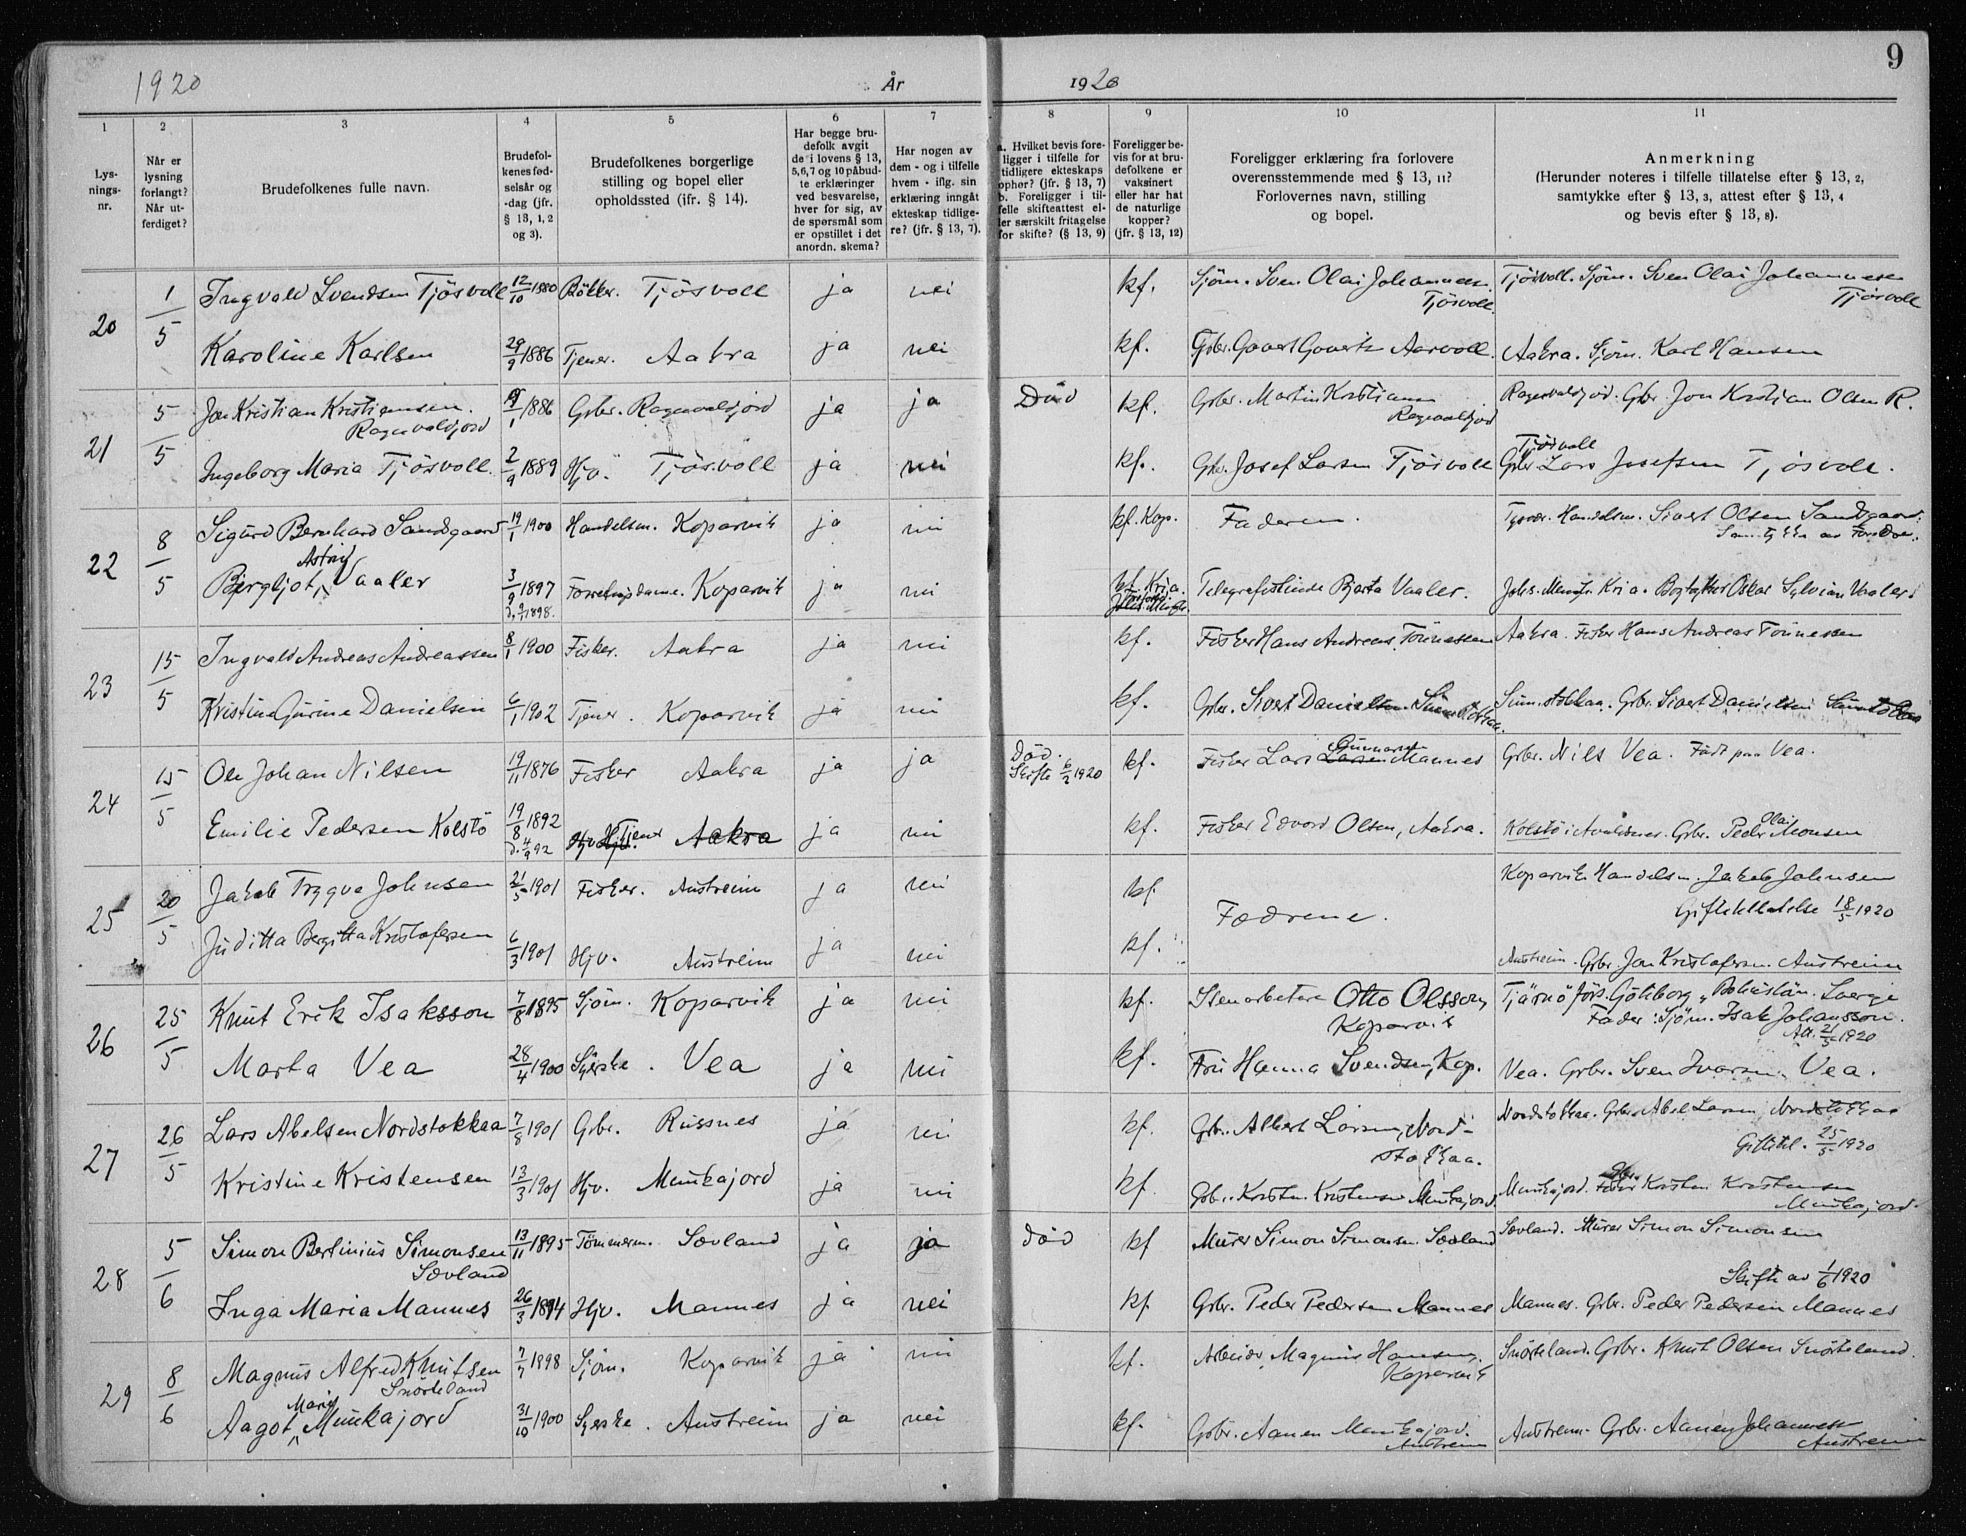 1920 År 1920 9
1 2 3 4 5 6 7 8 9 10 11
Lysnings-nr.
Når er lysning forlangt? Når utferdiget?
Brudefolkenes fulle navn.
Brudefolkenes fødselsår og -dag (jfr. § 13, 1, 2 og 3).
Brudefolkenes borgerlige stilling og bopel eller opholdssted (jfr. § 14).
Har begge brudefolk avgit de i lovens § 13, 5,6,7 og 10 påbudte erklæringer ved besvarelse, hver for sig, av de spørsmål som er opstillet i det anordn. skema?
Har nogen av dem - og i tilfelle hvem - iflg. sin erklæring inngåt ekteskap tidligere? (jfr. § 13, 7).
a. Hvilket bevis foreligger i tilfelle for tidligere ekteskaps ophør? (jfr. § 13, 7) b. Foreligger i tilfelle skifteattest eller særskilt fritagelse for skifte? (§ 13, 9)
Foreligger bevis for at brudefolkene er vaksinert eller har hat de naturlige kopper? (jfr. § 13, 12)
Foreligger erklæring fra forlovere overensstemmende med § 13, 11? Forlovernes navn, stilling og bopel.
Anmerkning (Herunder noteres i tilfelle tillatelse efter § 13, 2, samtykke efter § 13, 3, attest efter § 13, 4 og bevis efter § 13, 8).
20 1/5 Ingvald Svendsen Tjösvoll 12/10 1880 Bökker. Tjösvoll ja nei kf. Sjöm. Sven Olai Johannesen Tjösvoll. Tjösvoll. Sjöm. Sven Olai Johannesen Tjösvoll
Karoline Karlsen 29/9 1886 Tjener. Aakra ja nei kf. Gbr. Govert Govertsen Aarvoll. Aakra. Sjöm. Karl Hansen
21 5/5 Jon Kristian Kristiansen. Ragnvaldjord /1 1886 Grbr. Ragnvaldjord ja ja Död kf. Grbr. Martin Kristiansen Ragnvaldjord Ragnvaldjord. Gbr. Jon Kristian Olsen R.
Ingeborg Maria Tjösvoll. 2/9 1889 Hjv. Tjösvoll ja nei kf. Gbr. Josef Larsen Tjösvoll Tjösvoll Grbr Lars Josefsen Tjösvoll.
22 8/5 Sigurd Bernhard Sandgaard 19/1 1900 Handelsm. Koparvik ja nei kf. Kop. Faderen. Tysvær. Handelsm. Sivert Olsen Sandgaard. Samtykke av Foreldre.
Bergljot Astrid Vaaler 3/9 1897 d. 9/1 1898. Forretningsdame. Koparvik ja nei kf. Kria. Telegrafistinde Bjarta Vaaler. Johs. Menigh. Kria. Bogtrykker Oskar Sylvian Vaaler.
23 15/5 Ingvald Andreas Andreassen 8/1 1900 Fisker. Aakra ja nei kf. Fisker Hans Andreas Tönnesen Aakra. Fisker Hans Andreas Tönnesen
Kristine Gurine Danielsen 6/1 1902 Tjener. Koparvik ja nei kf. Grbr. Sivert Danielsen. Sunnstokkaa. Sunnstokkaa. Grbr. Sivert Danielsen
24 15/5 Ole Johan Nilsen 19/11 1876 Fisker Aakra ja ja Död. Skifte 6/2 1920 kf. Fisker Lars Gunnarsen Larsen Mannes Grbr. Nils Vea. Födt paa Vea.
Emilie Pedersen Kolstö 19/8 1892 d. 4/9 92 Hjv. Tjener Aakra ja nei kf. Fisker Edvard Olsen, Aakra. Kolstö i Avaldsnes. Grbr. Peder Olai Monsen
25 20/5 Jakob Trygve Johnsen 21/5 1901 Fisker. Austreim ja nei kf. Fædrene. Koparvik Handelsm. Jakob Johnsen Giftetillatelse 18/5 1920
Juditta Bergitta Kristofersen 6/3 1901 Hjv. Austreim ja nei kf. Austreim. Grbr. Jon Kristofersen Austreim
26 25/5 Knut Erik Isaksson 7/8 1895 Sjöm. Koparvik ja nei kf. Stenarbeidere Otto Olsson, Koparvik Tjärnö förs. Göteborg, Bohuslän. Sverige Fader: Sjöm. Isak Johansson. Att. 21/5 1920
Marta Vea 28/4 1900 Syerske. Vea ja nei kf. Fru Hanna Svendsen, Kop. Vea. Grbr. Sven Ivarsen. Vea.
27 26/5 Lars Abelsen Nordstokkaa 7/8 1901 Grbr. Russnes ja nei kf. Grbr. Albert Larsen, Nordstokkaa. Nordstokkaa. Grbr. Abel Larsen Nordstokkaa Giftetil. 25/5 1920
Kristine Kristensen 13/3 1901 Hjv. Munkajord ja nei kf. Gbr. Kristen Kristensen Munkajord. Munkajord. Gbr. Kristen Kristensen Munkajord.
28 5/6 Simon Bertinius Simonsen Sævland 13/11 1895 Tömmerm. Sævland ja ja död kf Murer Simon Simonsen Sævland Sævland. Murer Simon Simonsen Skifte av 1/6 1920
Inga Maria Mannes 26/3 1894 Hjv. Mannes ja nei kf. Grbr. Peder Pedersen Mannes Mannes. Grbr. Peder Pedersen Mannes
29 8/6 Magnus Alfred Knutsen Snörteland 7/7 1898 Sjöm. Koparvik ja nei kf. Arbeider. Magnus Hansen, Koparvik Snörteland. Grbr. Knut Olsen Snörteland.
Aagot Marie Munkajord 31/10 1900 Syerske. Austreim ja nei kf. Gbr. Aanen Munkajord. Austreim Austreim. Grbr. Aanen Johannessen Austreim